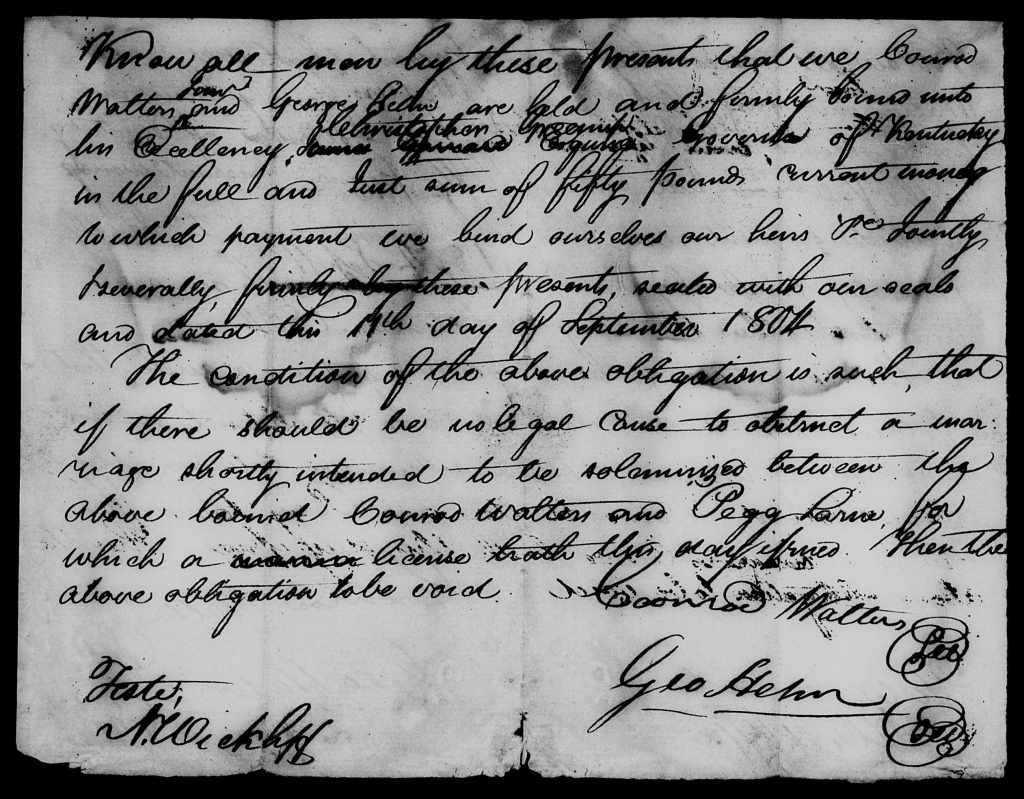 Know all men by these presents that we Conrod
Walters Senr and George Helm are held and firmly bound unto
his Excellency Christopher Greenup Governor of Kentucky
in the full and Just sum of fifty pounds current money
to which payment we bind ourselves our heirs &c Jointly
& severally, firmly by these presents, sealed with our seals
and dated this 17th day of September 1804
The condition of the above obligation is such, that
if there should be no legal cause to obstruct a mar-
riage shortly intended to be solemnized between the
above bound Conrod Walters and Pegg, for
which a license hath this day issued. Then the
above obligation to be void.
Coonrod Walters Seal
Geo Helm Seal
Teste,
N. Wickliff